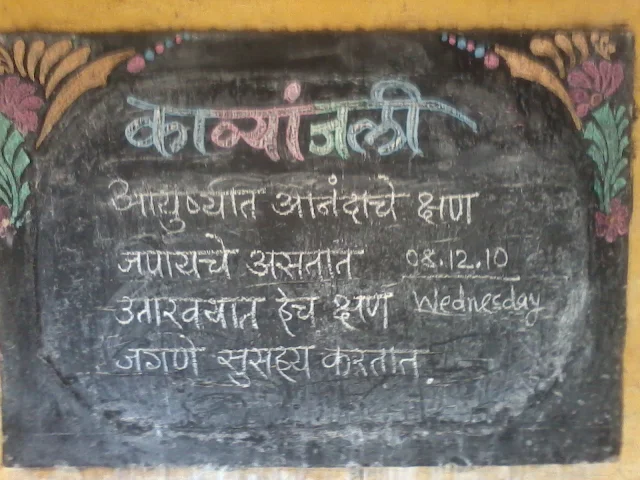 काव्यांजली
आयुष्यात आनंदाचे क्षण
जपायचे असतात 08.12.10
उतारवयात हेच क्षण Wednesday
जगणे सुसह्य करतात.